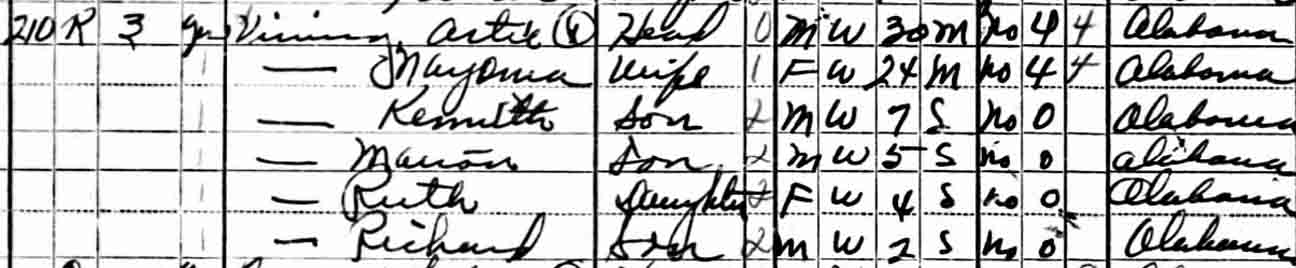 210 R 3 yes Vining, Artie ⓧ Head 0 M W 30 M no 4 4 Alabama
— Mayoma Wife 1 F W 24 M no 4 4 Alabama
— Kennith Son 2 M W 7 S no 0 Alabama
— Marion Son 2 M W 5 S no 0 Alabama
— Ruth Daughter 2 F W 4 S no 0 Alabama
— Richard Son 2 M W 2 S no 0 Alabama